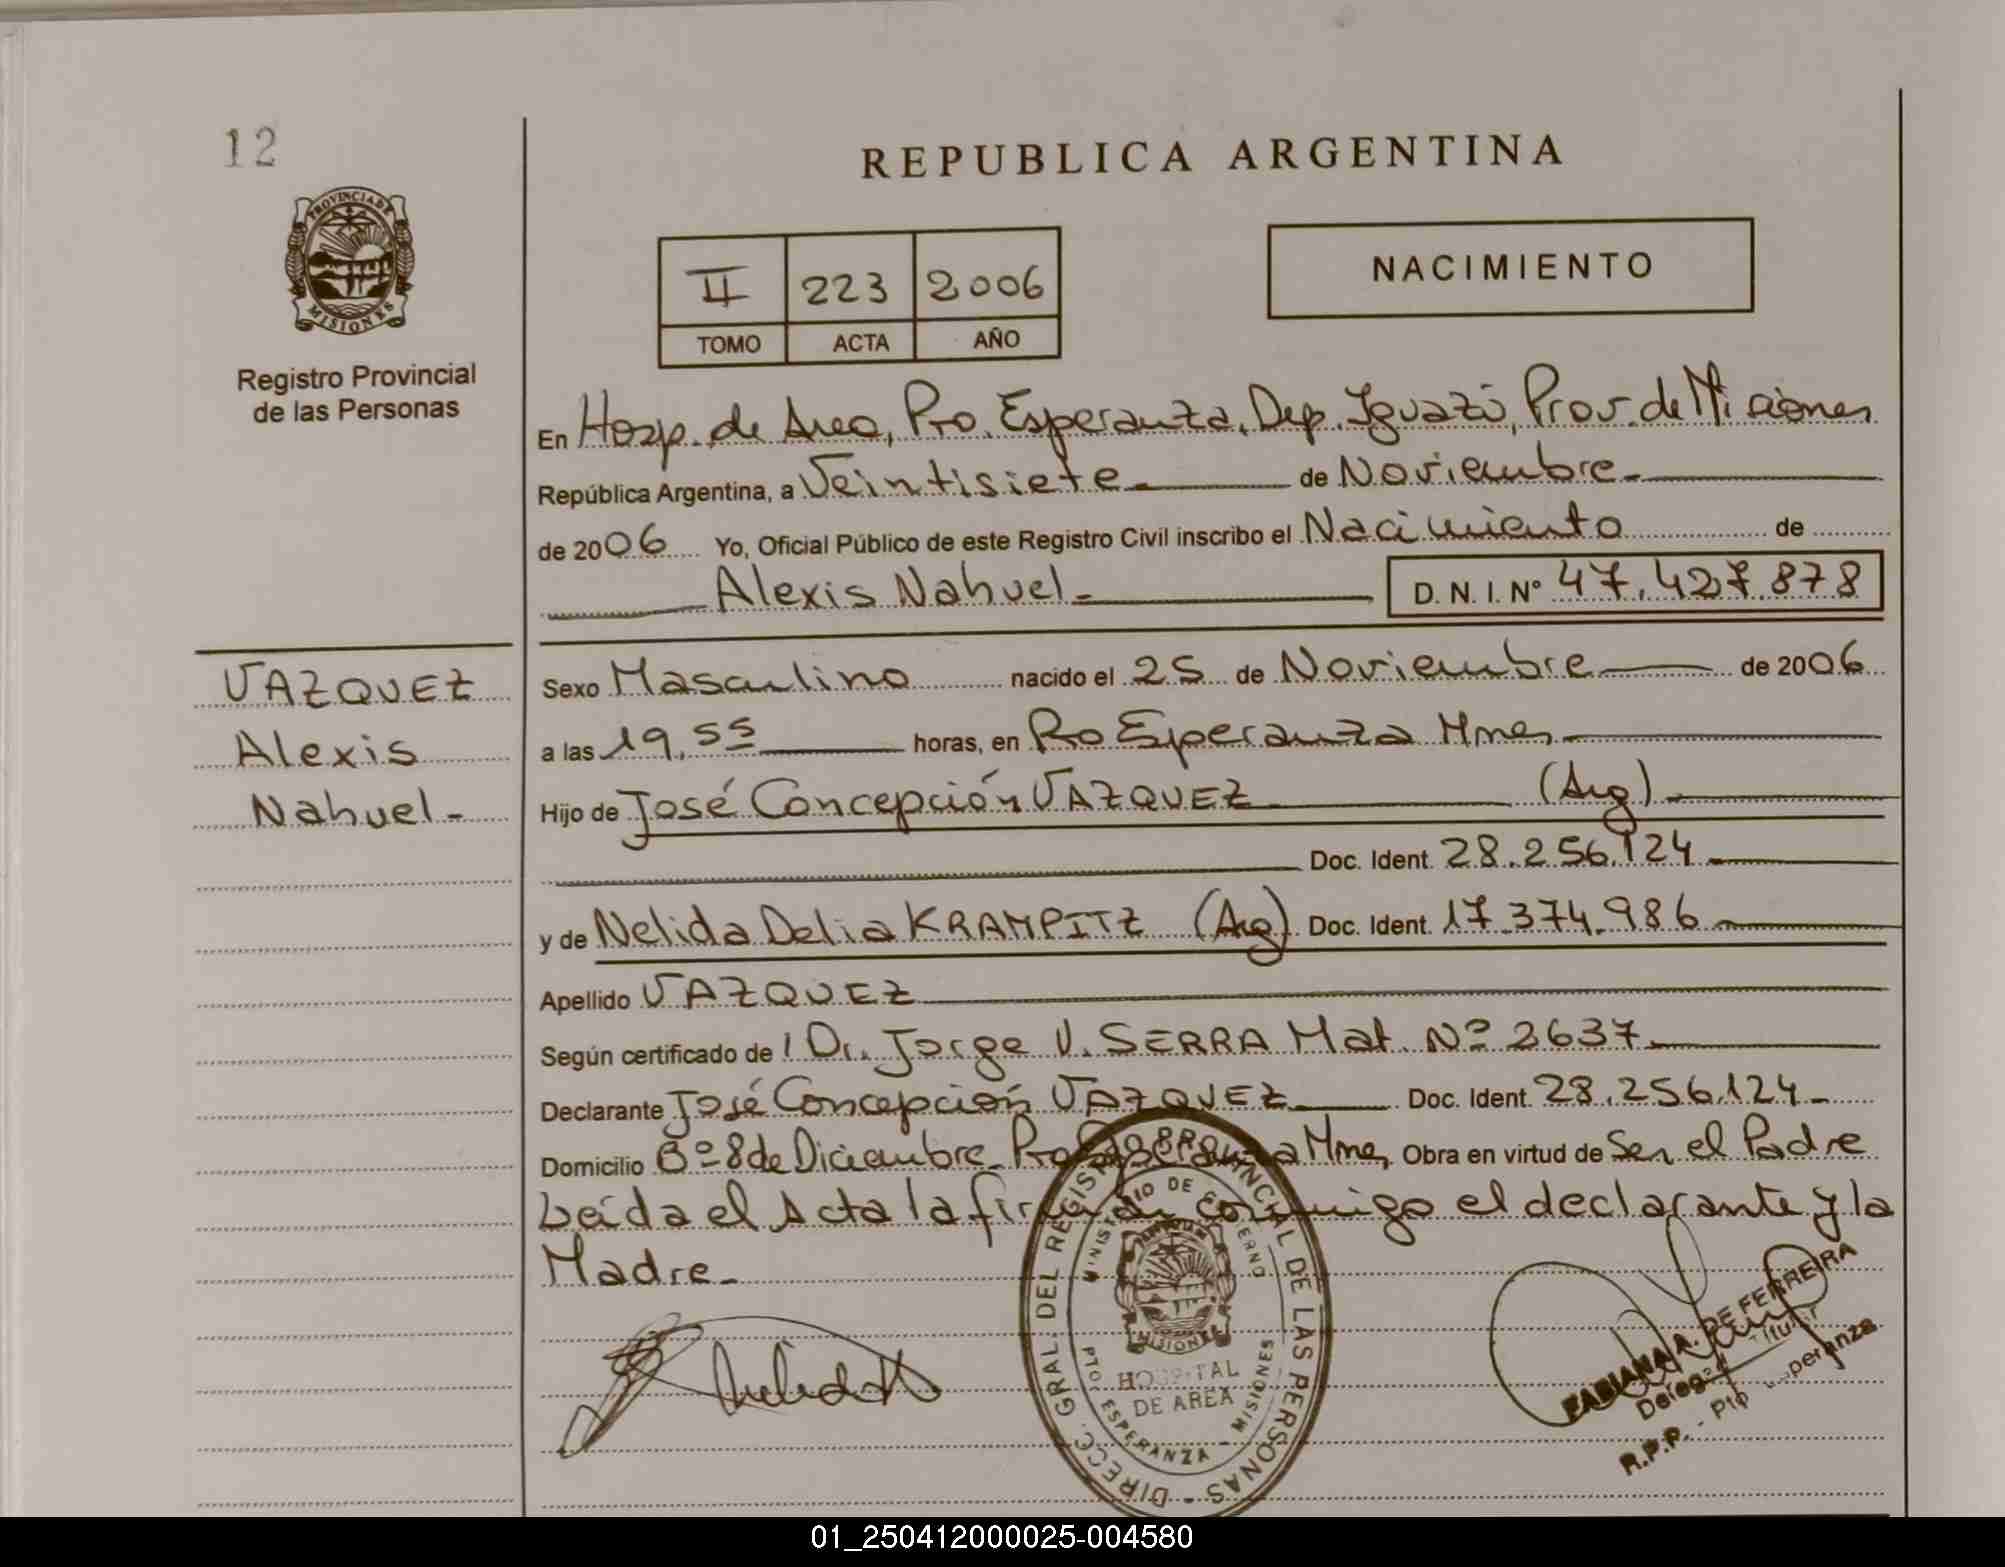 12
REPUBLICA ARGENTINA
PROVINCIA DE
MISIONES
Registro Provincial
de las Personas
II 223 2006
TOMO ACTA AÑO
NACIMIENTO
En Hosp. de Area, Pto. Esperanza, Dep. Iguazú, Prov. de Misiones
República Argentina, a Veintisiete de Noviembre
de 2006 Yo, Oficial Público de este Registro Civil inscribo el Nacimiento de
Alexis Nahuel D.N.I. Nº 47.427.878
VAZQUEZ
Alexis
Nahuel
Sexo Masculino nacido el 25 de Noviembre de 2006
a las 19,55 horas, en Pto Esperanza Mnes
Hijo de José Concepción VAZQUEZ (Arg)
Doc. Ident. 28.256.124
y de Nelida Delia KRAMPITZ (Arg) Doc. Ident. 17.374.986
Apellido VAZQUEZ
Según certificado de Dr. Jorge V. SERRA Mat. Nº 2637
Declarante José Concepción VAZQUEZ Doc. Ident. 28.256.124
Domicilio Bº 8 de Diciembre Pto Esperanza Mnes Obra en virtud de Ser el Padre
Leída el Acta la firman conmigo el declarante y la
Madre
DIRECC. GRAL. DEL REGISTRO PROVINCIAL DE LAS PERSONAS
MINISTERIO DE GOBIERNO
MISIONES
HOSPITAL
DE AREA
PTO. ESPERANZA - MISIONES
FABIANA A. DE FERREIRA
Delegada Titular
R.P.P. - Pto Esperanza
01_250412000025-004580